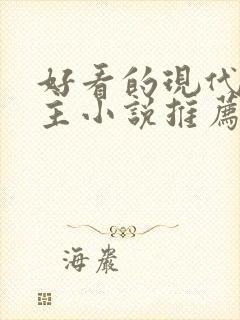 好看的現代
主小說推薦
海巖